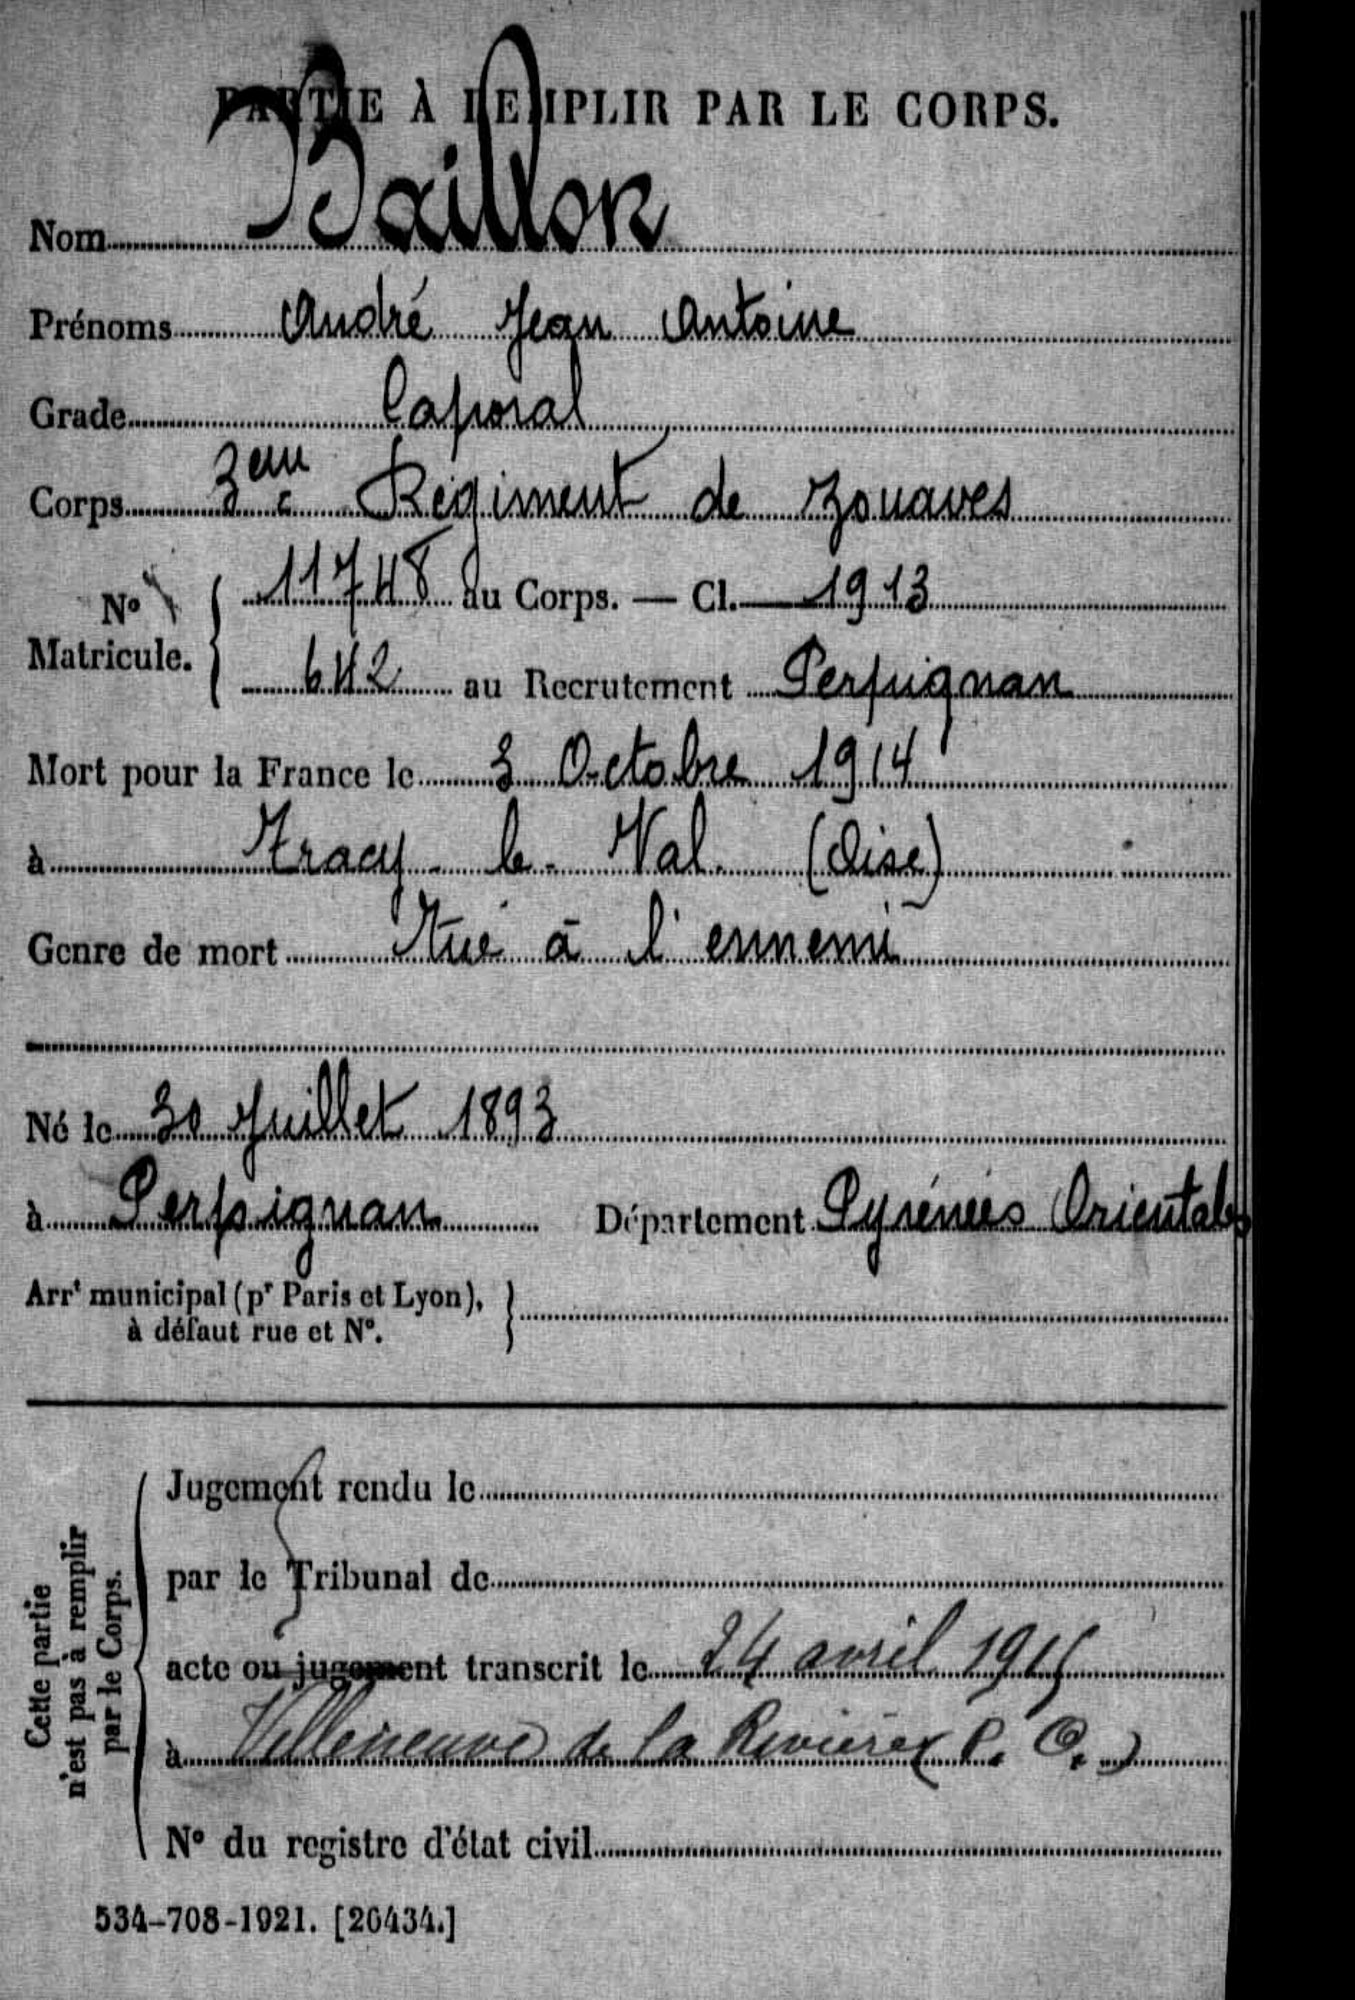 PARTIE À REMPLIR PAR LE CORPS.
Nom Baillon
Prénoms André Jean Antoine
Grade Caporal
Corps 3eme Régiment de Zouaves
N° Matricule. { 11748 au Corps. — Cl. 1913
642 au Recrutement Perpignan
Mort pour la France le 3 Octobre 1914
à Tracy - le - Val (Oise)
Genre de mort Tué à l'ennemi
Né le 30 Juillet 1893
à Perpignan Département Pyrénées Orientales
Arrt municipal (pr Paris et Lyon), }
à défaut rue et N°.
Cette partie
n'est pas à remplir
par le Corps.
Jugement rendu le
par le Tribunal de
acte ou jugement transcrit le 24 avril 1915
à Villeneuve de la Rivière (P. O.)
N° du registre d'état civil
534-708-1921. [26434.]